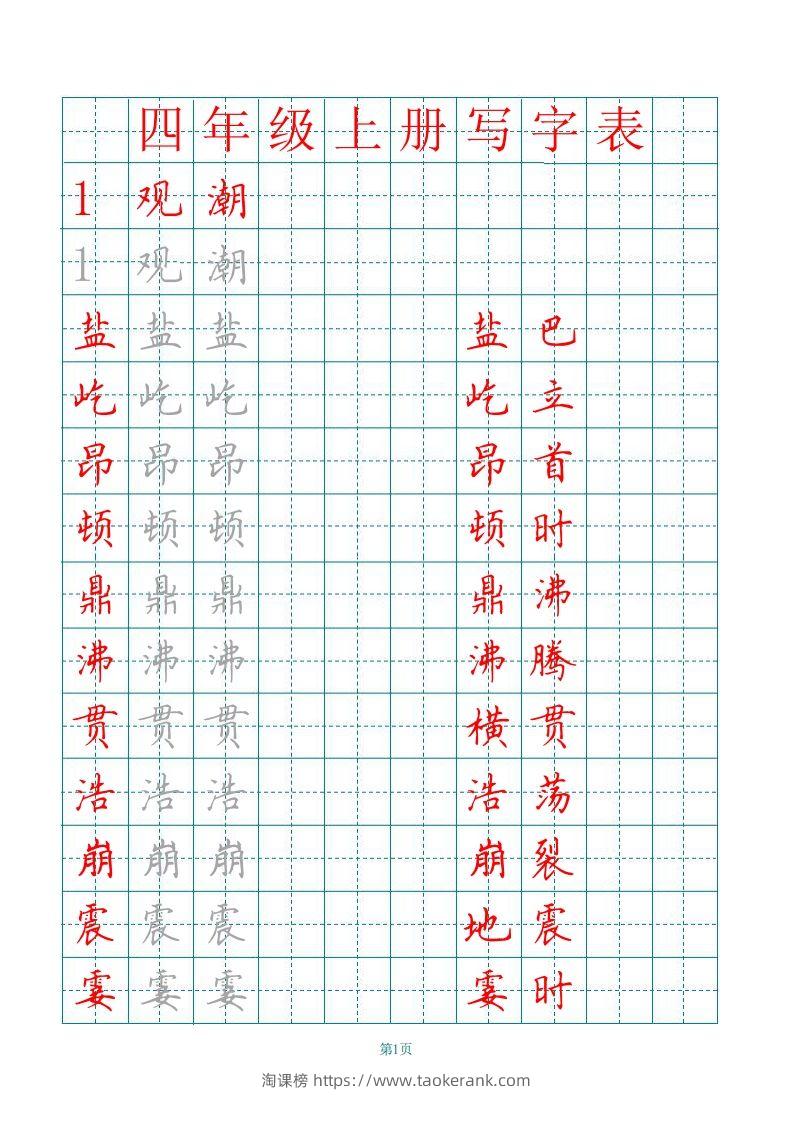 四年级上册写字表
1 观潮
1 观潮
盐 盐 盐 盐巴
屹 屹 屹 屹立
昂 昂 昂 昂首
顿 顿 顿 顿时
鼎 鼎 鼎 鼎沸
沸 沸 沸 沸腾
贯 贯 贯 横贯
浩 浩 浩 浩荡
崩 崩 崩 崩裂
震 震 震 地震
霎 霎 霎 霎时
第1页
淘课榜 https://www.taokerank.com